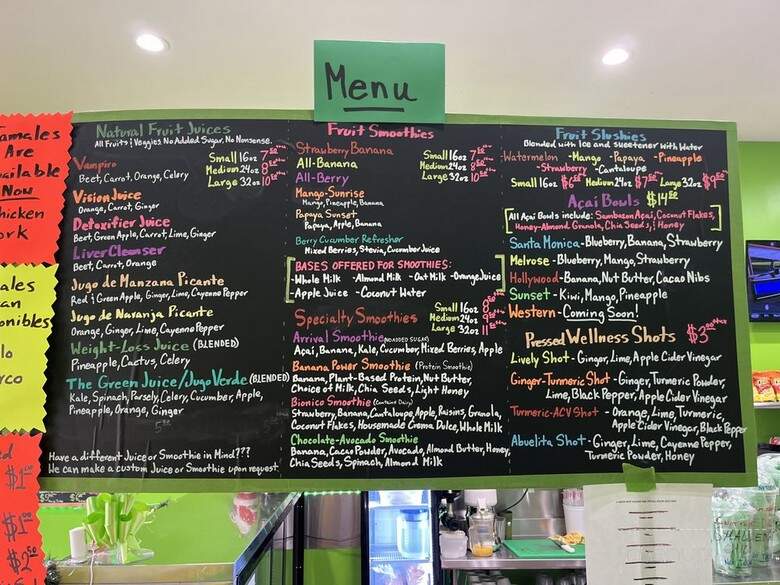 Menu
amales
Are
vailable
Now
hicken
ork
ales
an
onibles
lo
rco
ed
$1
$1
$2
Natural Fruit Juices
All Fruits & Veggies, No Added Sugar, No Nonsense.
Small 16oz 7
Medium 24oz 8
Large 32oz 10
Vampiro
Beet, Carrot, Orange, Celery
Vision Juice
Orange, Carrot, Ginger
Detoxifier Juice
Beet, Green Apple, Carrot, Lime, Ginger
Liver Cleanser
Beet, Carrot, Orange
Jugo de Manzana Picante
Red & Green Apple, Ginger, Lime, Cayenne Pepper
Jugo de Naranja Picante
Orange, Ginger, Lime, Cayenne Pepper
Weight-Loss Juice (BLENDED)
Pineapple, Cactus, Celery
The Green Juice/Jugo Verde (BLENDED)
Kale, Spinach, Parsely, Celery, Cucumber, Apple,
Pineapple, Orange, Ginger
Have a different Juice or Smoothie in Mind???
We can make a custom Juice or Smoothie upon request
Fruit Smoothies
Strawberry Banana
All-Banana
All-Berry
Small 16oz 7
Medium 24oz 8
Large 32oz 10
Mango-Sunrise
Mango, Pineapple, Banana
Papaya Sunset
Papaya, Apple, Banana
Berry Cucumber Refresher
Mixed Berries, Stevia, Cucumber Juice
BASES OFFERED FOR SMOOTHIES:
-Whole Milk -Almond Milk -Oat Milk -Orange Juice
-Apple Juice -Coconut Water
Specialty Smoothies
Small 16oz 8
Medium 24oz 9
Large 32oz 11
Arrival Smoothie (NO ADDED SUGAR)
Açai, Banana, Kale, Cucumber, Mixed Berries, Apple
Banana Power Smoothie (Protein Smoothie)
Banana, Plant-Based Protein, Nut Butter,
Choice of Milk, Chia Seeds, Light Honey
Bionico Smoothie (Contains Dairy)
Strawberry, Banana, Cantaloupe, Apple, Raisins, Granola,
Coconut Flakes, Housemade Crema Dulce, Whole Milk
Chocolate-Avocado Smoothie
Banana, Cacao Powder, Avocado, Almond Butter, Honey,
Chia Seeds, Spinach, Almond Milk
Fruit Slushies
Blended with Ice and Sweetener with Water
-Watermelon -Mango -Papaya -Pineapple
-Strawberry -Cantaloupe
Small 16oz $6 Medium 24oz $7 Large 32oz $9
Açai Bowls $14
All Açai Bowls include: Sambazon Açai, Coconut Flakes,
Honey-Almond Granola, Chia Seeds, & Honey
Santa Monica - Blueberry, Banana, Strawberry
Melrose - Blueberry, Mango, Strawberry
Hollywood - Banana, Nut Butter, Cacao Nibs
Sunset - Kiwi, Mango, Pineapple
Western - Coming Soon!
Pressed Wellness Shots $3
Lively Shot - Ginger, Lime, Apple Cider Vinegar
Ginger-Turmeric Shot - Ginger, Turmeric Powder,
Lime, Black Pepper, Apple Cider Vinegar
Turmeric-ACV Shot - Orange, Lime, Turmeric,
Apple Cider Vinegar, Black Pepper
Abuelita Shot - Ginger, Lime, Cayenne Pepper,
Turmeric Powder, Honey